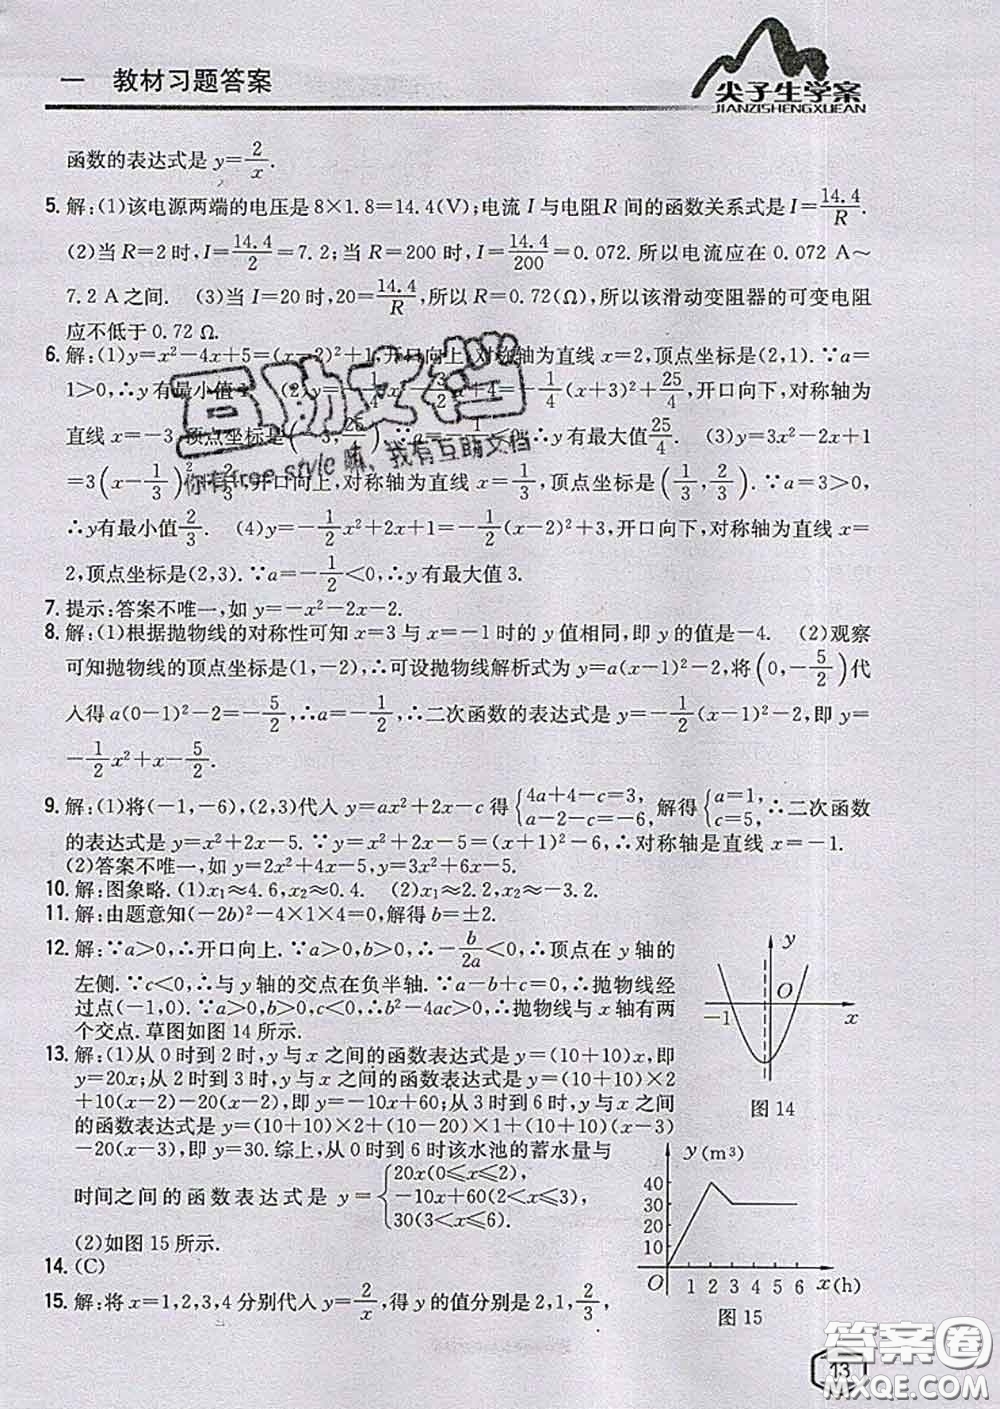 一 教材习题答案
尖子生学案
JIANZISHENGXUEAN
函数的表达式是 y=2/x.
5. 解:(1)该电源两端的电压是 8×1.8=14.4(V);电流 I 与电阻R 间的函数关系式是 I=14.4/R.
(2)当 R=2 时,I=14.4/2=7.2;当 R=200 时,I=14.4/200=0.072. 所以电流应在 0.072 A~
7.2 A之间. (3)当 I=20 时,20=14.4/R,所以 R=0.72(Ω),所以该滑动变阻器的可变电阻
应不低于 0.72 Ω.
6. 解:(1)y=x²-4x+5=(x-2)²+1,开口向上,对称轴为直线 x=2,顶点坐标是(2,1). ∵a=
1>0,∴y 有最小值 1. (2)y=-1/4x²-3/2x+4=-1/4(x+3)²+25/4,开口向下,对称轴为
直线 x=-3,顶点坐标是(-3,25/4). ∵a=-1/4<0,∴y 有最大值25/4. (3)y=3x²-2x+1
=3(x-1/3)²+2/3,开口向上,对称轴为直线 x=1/3,顶点坐标是(1/3,2/3). ∵a=3>0,
∴y有最小值2/3. (4)y=-1/2x²+2x+1=-1/2(x-2)²+3,开口向下,对称轴为直线 x=
2,顶点坐标是(2,3). ∵a=-1/2<0,∴y 有最大值 3.
7. 提示:答案不唯一,如 y=-x²-2x-2.
8. 解:(1)根据抛物线的对称性可知 x=3 与 x=-1 时的 y 值相同,即 y 的值是-4. (2)观察
可知抛物线的顶点坐标是(1,-2),∴可设抛物线解析式为 y=a(x-1)²-2,将(0,-5/2)代
入得 a(0-1)²-2=-5/2,∴a=-1/2,∴二次函数的表达式是 y=-1/2(x-1)²-2,即 y=
-1/2x²+x-5/2.
9. 解:(1)将(-1,-6),(2,3)代入 y=ax²+2x-c 得{4a+4-c=3, a-2-c=-6, 解得{a=1, c=5, ∴二次函数
的表达式是 y=x²+2x-5. ∵y=x²+2x-5=(x+1)²-6,∴对称轴是直线 x=-1.
(2)答案不唯一,如 y=2x²+4x-5,y=3x²+6x-5.
10. 解:图象略. (1)x₁≈4.6,x₂≈0.4. (2)x₁≈2.2,x₂≈-3.2.
11. 解:由题意知(-2b)²-4×1×4=0,解得 b=±2.
12. 解:∵a>0,∴开口向上. ∵a>0,b>0,∴-b/2a<0,∴顶点在 y 轴的
左侧. ∵c<0,∴与 y 轴的交点在负半轴. ∵a-b+c=0,∴抛物线经
过点(-1,0). ∵a>0,b>0,c<0,∴b²-4ac>0,∴抛物线与 x 轴有两
个交点. 草图如图 14 所示.
y
O
-1
x
图 14
13. 解:(1)从 0 时到 2 时,y 与 x 之间的函数表达式是 y=(10+10)x,即
y=20x;从 2 时到 3 时,y 与 x 之间的函数表达式是 y=(10+10)×2
+10(x-2)-20(x-2),即 y=-10x+60;从 3 时到 6 时,y 与 x 之间
的函数表达式是 y=(10+10)×2+(10-20)×1+10(x-3)
-20(x-3),即 y=30. 综上,从 0 时到 6 时该水池的蓄水量与
时间之间的函数表达式是 y={20x(0⩽x⩽2),
-10x+60(2<x⩽3),
30(3<x⩽6).
(2)如图 15 所示.
y(m³)
40
30
20
10
O 1 2 3 4 5 6 x(h)
图 15
14. (C)
15. 解:将 x=1,2,3,4 分别代入 y=2/x,得 y 的值分别是 2,1,2/3,
互助文档
你有free style嘛、我有互助文档
13
答案圈
MXQE.COM